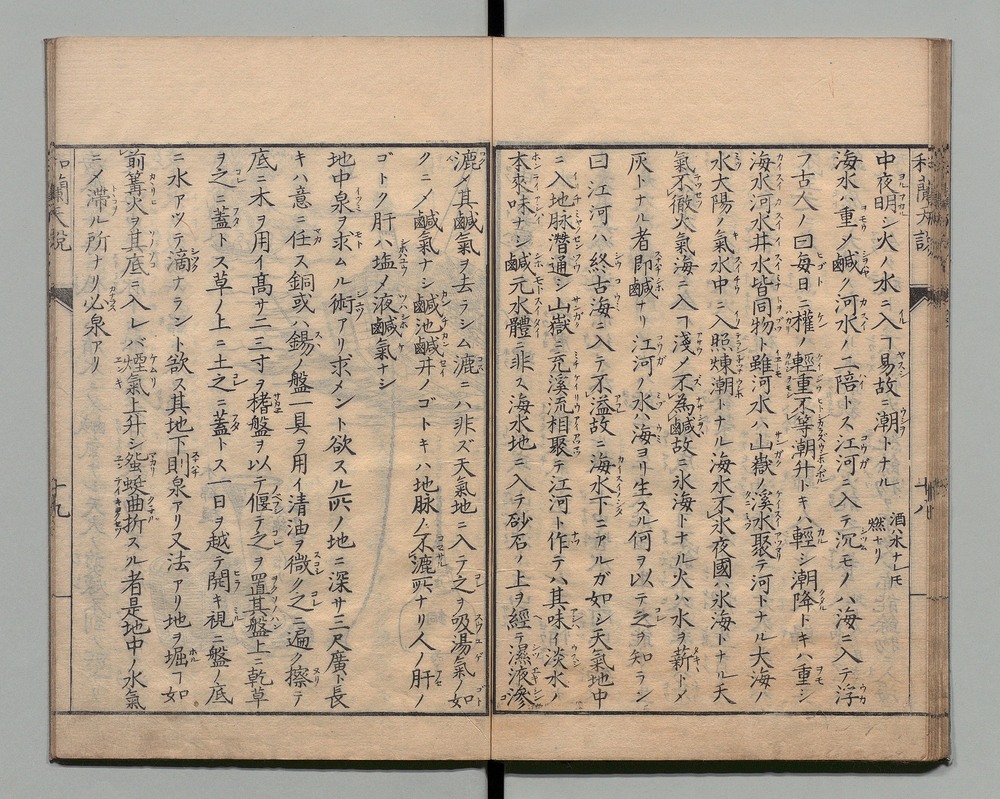 和蘭天説 十八
中夜明シ火ノ水ニ入ヿ易故ニ潮トナル 酒ハ水ナレ𪜈燃ヤリ
海水ハ重メ鹹ク河水ノ二陪トス江河ニ入テ沉モノハ海ニ入テ浮
フ古人ノ曰毎日ニ權ノ輕重不等潮升トキハ輕シ潮降トキハ重シ
海水河水井水皆同物ト雖河水ハ山嶽ノ溪水聚テ河トナル大海ノ
水大陽ノ氣水中ニ入照煉潮トナル海水不氷夜國ハ氷海トナル天
氣不徹火氣海ニ入ヿ淺メ不為鹹故ニ氷海トナル火ハ水ヲ薪トメ
灰トナル者即鹹ナリ江河ノ水海ヨリ生スル何ヲ以テ之ヲ知ラン
曰江河ハ終古海ニ入テ不溢故ニ海水下ニアルガ如シ天氣地中
ニ入地脉潛通シ山嶽ニ充溪流相聚テ江河ト作テハ其味イ淡水ノ
本來味ナシ鹹元水體ニ非ス海水地ニ入テ砂石ノ上ヲ經テ濕液滲
漉メ其鹹氣ヲ去ラシム漉ニハ非ズ天氣地ニ入テ之ヲ吸湯氣ノ如
クニメ鹹氣ナシ鹹池鹹井ノゴトキハ地脉ノ不漉所ナリ人ノ肝ノ
ゴトク肝ハ塩メ液鹹氣ナシ
地中泉ヲ求ムル術アリ求メント欲スル所ノ地ニ深サ三尺廣ト長
キハ意ニ任ス銅或ハ錫ノ盤一具ヲ用イ清油ヲ微ク之ニ遍ク擦テ
底ニ木ヲ用イ髙サ二三寸ヲ楮盤ヲ以テ偃テ之ヲ置其盤上ニ乾草
ヲ之ニ蓋トス草ノ上ニ土之ニ蓋トス一日ヲ越テ開キ視ニ盤ノ底
ニ水アツテ滴ナラント欲ス其地下則泉アリ又法アリ地ヲ堀ヿ如
前篝火ヲ其底ニ入レバ煙氣上升シ蜿蜒曲折スル者是地中ノ水氣
ニメ滞ル所ナリ必泉アリ
和蘭天説 十九